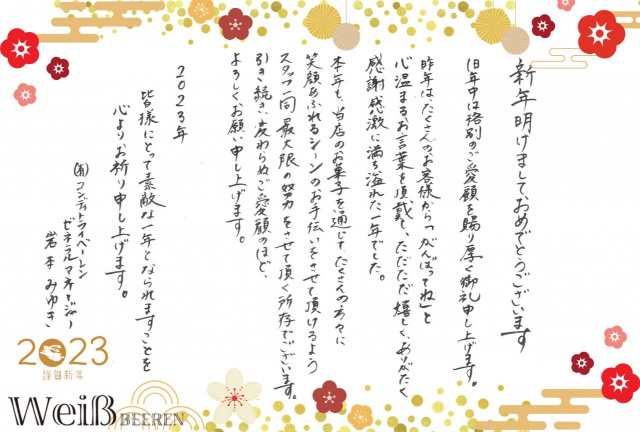 新年明けましておめでとうございます
旧年中は格別のご愛顧を賜り厚く御礼申し上げます。
昨年は、たくさんのお客様から「がんばってね」と
心温まるお言葉を頂戴し、ただただ嬉しく、ありがたく
感謝感激に満ち溢れた一年でした。
本年も、当店のお菓子を通じてたくさんの方々に
笑顔あふれるシーンのお手伝いをさせて頂けるよう
スタッフ一同最大限の努力をさせて頂く所存でございます。
引き続き、変わらぬご愛顧のほど、
よろしくお願い申し上げます。
2023年
皆様にとって素敵な一年となられますことを
心よりお祈り申し上げます。
㈲コンディトライベーレン
ゼネラルマネージャー
岩本みゆき
2023
謹賀新年
Weiß BEEREN